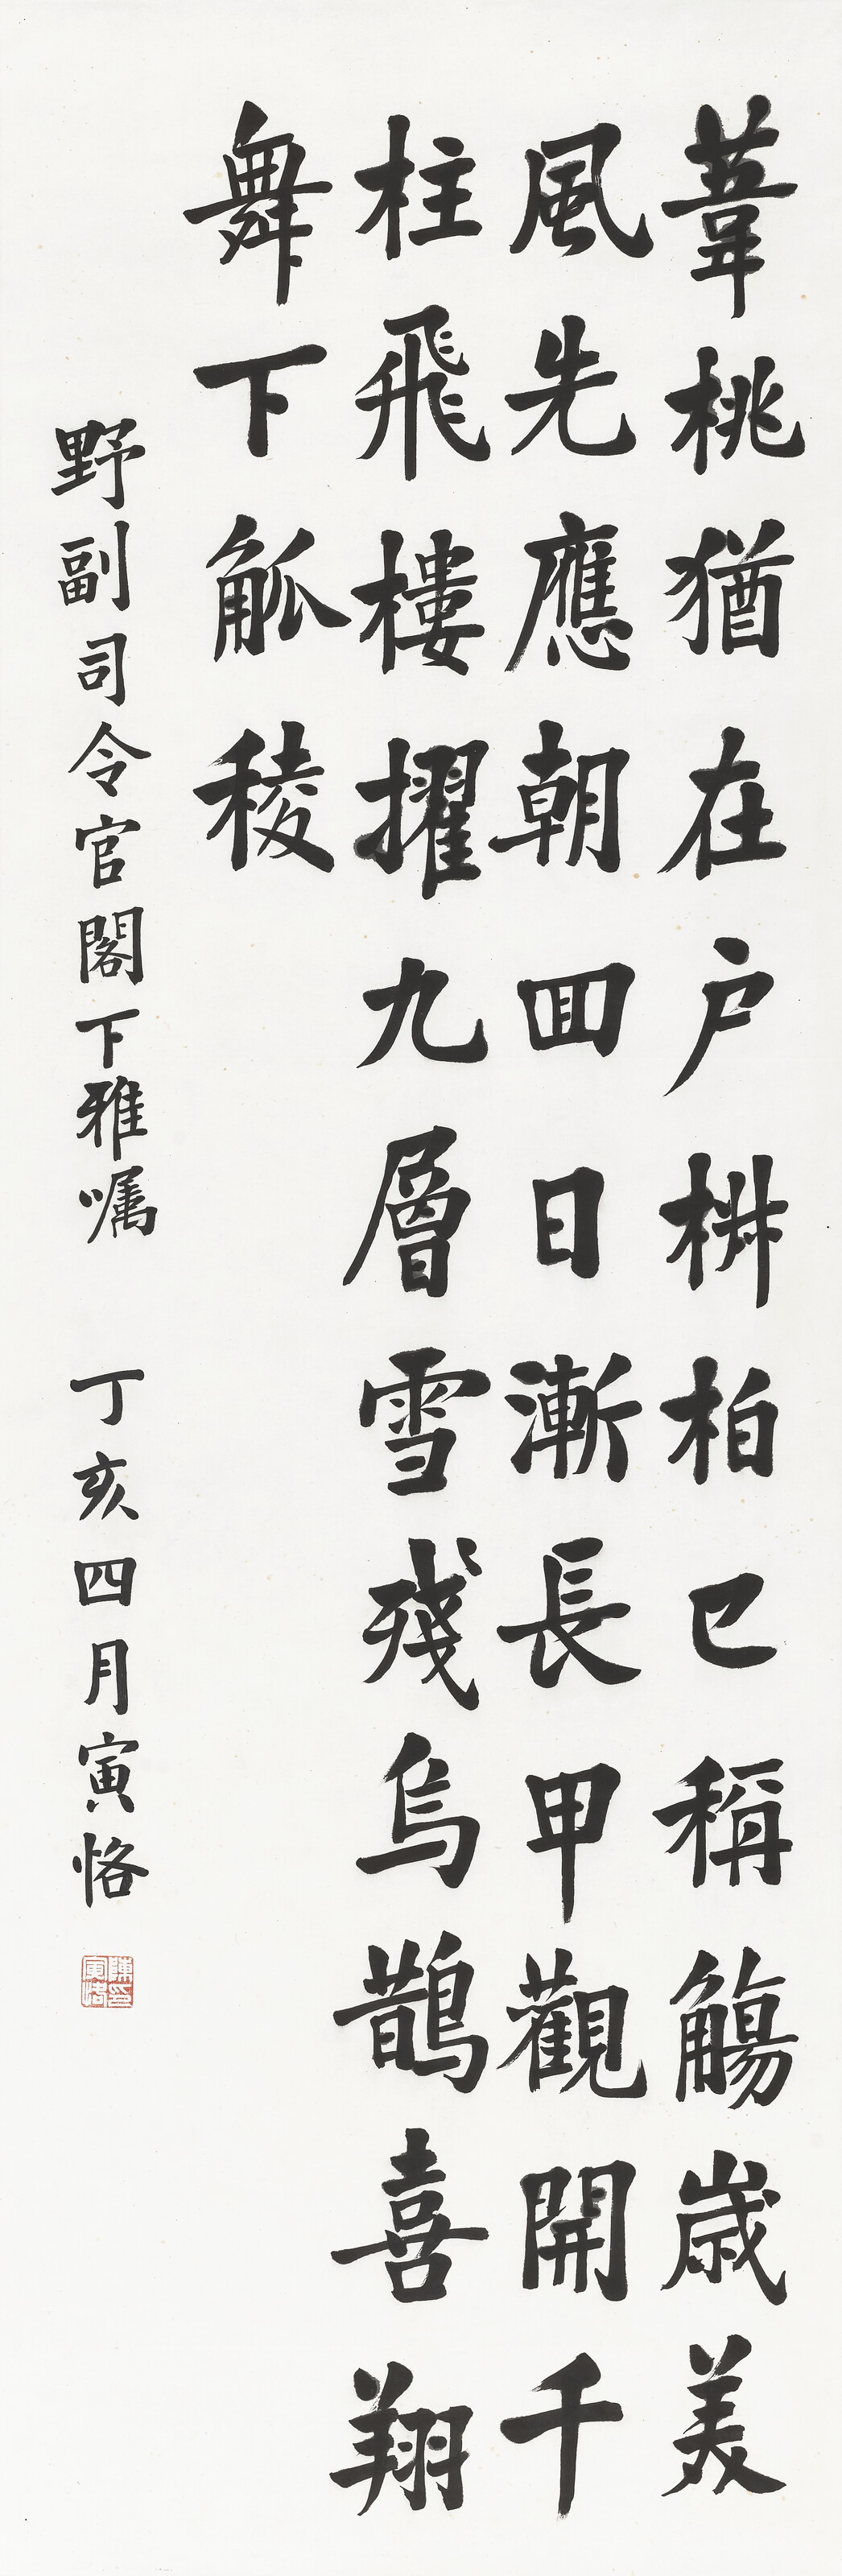 葦桃猶在户椒柏已稱觴歲美
風先應朝回日漸長甲觀開千
柱飛樓擢九層雪殘烏鵲喜翔
舞下觚稜
野副司令官閣下雅嘱 丁亥四月寅恪
陳寅恪印